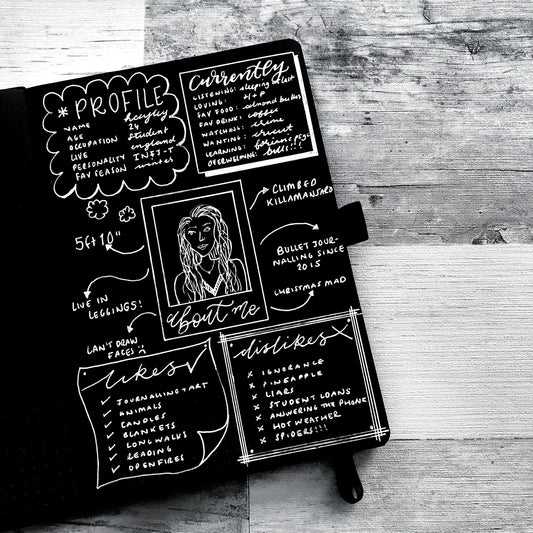 * PROFILE
NAME
AGE 24
OCCUPATION student
LIVE england
PERSONALITY INFJ-T
FAV SEASON winter
Currently
LISTENING: sleeping at last
LOVING: H+P
FAV FOOD: almond butter
FAV DRINK: coffee
WATCHING: crime
WANTING: cricut
LEARNING:
OVERWHELMING: bills!!!
CLIMBED
KILLAMANSARO
5ft 10"
BULLET JOUR-
NALLING SINCE
2015
LIVE IN
LEGGINGS!
CHRISTMAS MAD
about me
CAN'T DRAW
FACES
likes
JOURNALLING + ART
ANIMALS
CANDLES
BLANKETS
LONG WALKS
READING
OPEN FIRES
dislikes
x IGNORANCE
x PINEAPPLE
x LIARS
x STUDENT LOANS
x ANSWERING THE PHONE
x HOT WEATHER
x SPIDERS!!!